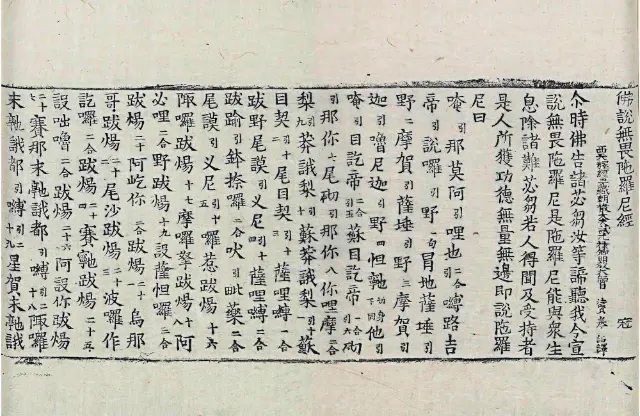 佛說無畏陀羅尼經
西天譯經三藏朝散大夫試 法賢奉 詔譯
尒時佛告諸苾芻汝等諦聽我今宣
說無畏陀羅尼是陀羅尼能與衆生
息除諸難苾芻若人得聞及受持者
是人所獲功德無量無邊即說陀羅
尼曰
唵引那莫阿引哩也二合嚩路吉
帝引說囉引野一冒地薩埵引
野二摩賀引薩埵引野三摩賀引
迦引嚕尼迦引野四怛䭾切身下同他引
唵引目訖帝引五二合蘇目訖帝二合引六砌
引那你七尾砌引那你八你哩摩二合
梨引九莽誐梨引十蘇莽誐梨引十一
目契引十二尾目契引十三薩哩嚩二合
跋野尾謨引義尼引十四薩哩嚩二合
跋踰引鉢捺囉二合吠引毗藥二合
尾謨引义尼十五囉惹跋煬十六
陬囉跋煬十七摩囉拏跋煬十八阿
必哩二合野跋煬十九設薩怛囉二合
跋煬二十阿屹你二合跋煬二十一烏那
哥跋煬二十二尾沙跋煬二十三波囉作
訖囉二合跋煬二十四賽䭾跋煬二十五
設咄嚕二合跋煬二十六阿設你跋煬
二十七賽那末䭾誐都引嚩二合陬囉
末䭾誐都引嚩二合十九星賀末䭾誐